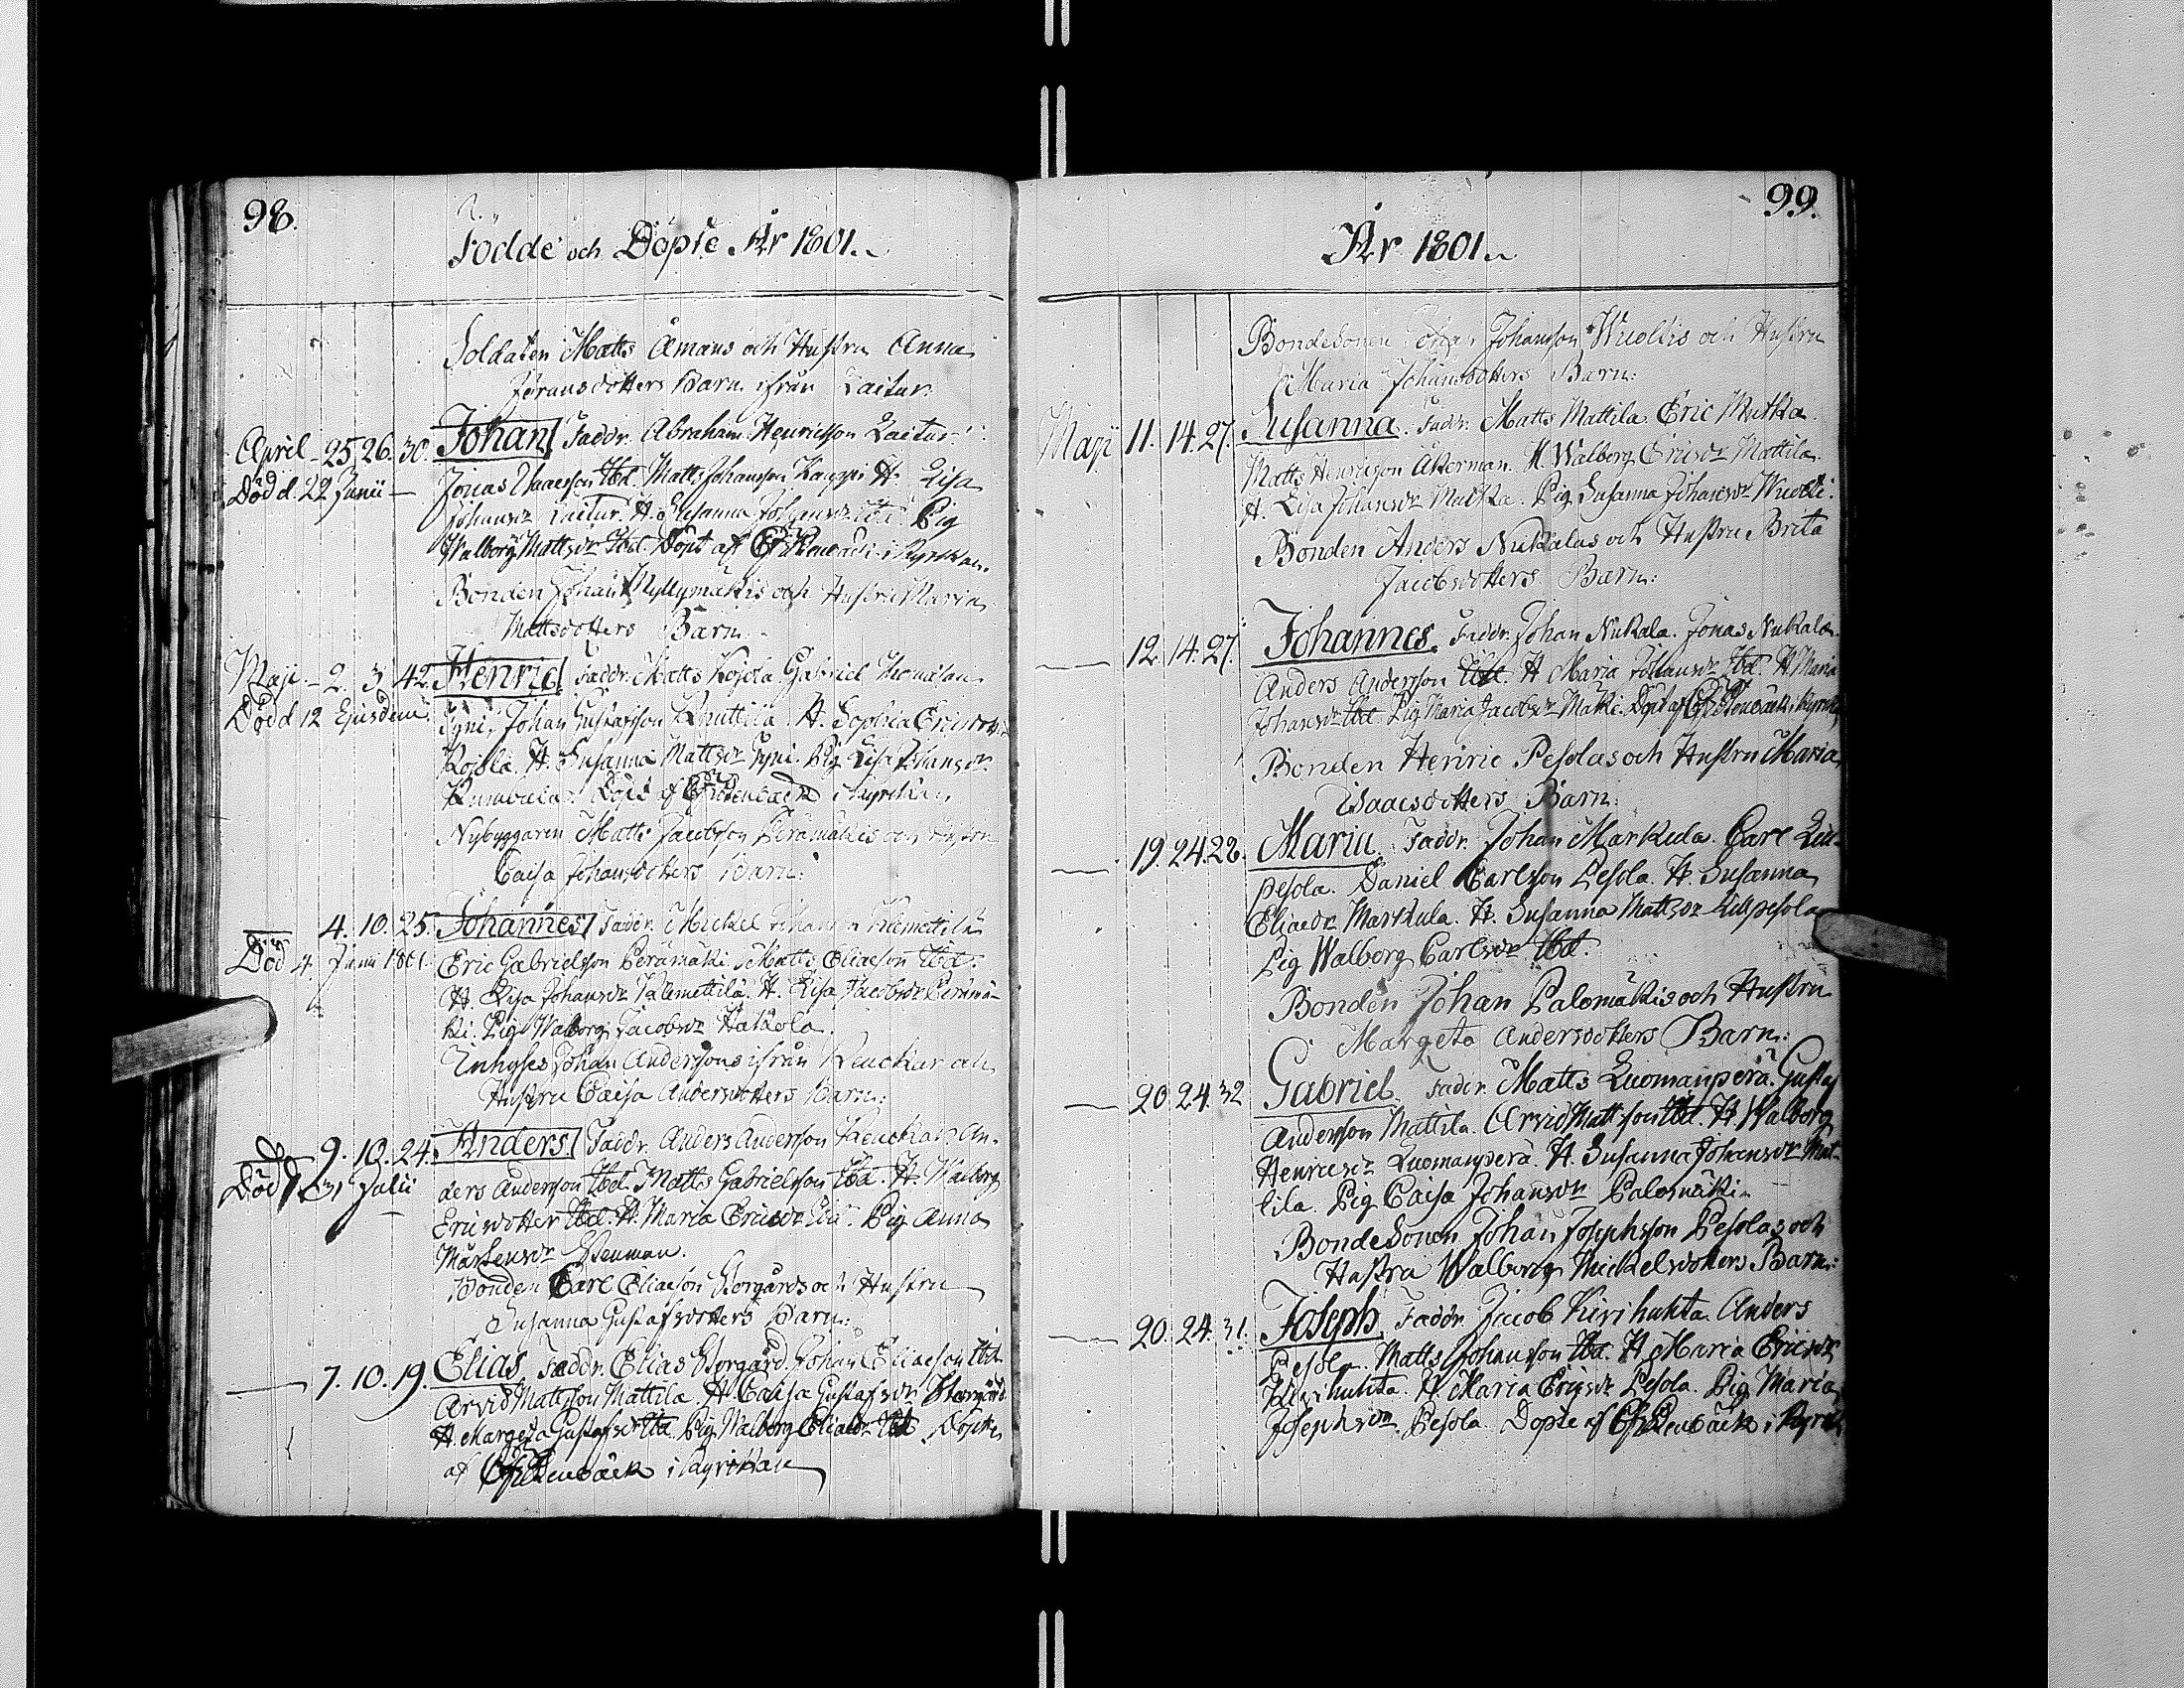 98.
Födde och Döpte År 1801.
Soldaten Matts Åmans och Hustru Anna
Jöransdotters Barn ifrån Laitur.
April - 25. 26. 30. Johan Faddr. Abraham Henricsson Laitur.
Död d. 22 Junii - Jonas Isaacsson Ibd. Matts Johansson Kauppi H. Lisa
Johansdr Laitur. H. Susanna Johansdr Ibd. Pig
Walborg Mattsdr Ibd. Döpt af Kyrckan.
Bonden Johan Myllymäkis och Hustru Maria
Mattsdotters Barn.
Maji. - 2. 3. 42. Henric Faddr. Matts KoJola Gabriel
Död d 12 Ejusdem. Johan Gustafsson Knuttila. H. Sophia Ericsdotter
Koisla. H. Susanna Mattsdr Pig Lisa Johansdr
Döpt af i Kyrckan
Nybyggaren Matts Jacobsson Perämäkis och Hustru
Caisa Johansdotters Barn:
4. 10. 25. Johannes Faddr. Mickel
Död 4 Junii 1801. Eric Gabrielsson Perämäki Matts Eliaeson Ibd.
H. Lisa Johansdr H. Lisa Jacobsdr Perämä-
ki. Pig Walborg Jacobsdr
Inhyses Johan Anderssons ifrån och
Hustru Caisa Andersdotters Barn:
9. 10. 24. Anders Faddr. Anders Andersson An-
Död d 31 Julii ders Andersson Ibd. Matts Gabrielsson Ibd. H. Walborg
Ericsdotter Ibd. H. Maria Ericsdr Ibd. Pig Anna
Mårtensdr
Bonden Carl Eliaeson Storgårds och Hustru
Susanna Gustafsdotters Barn:
7. 10. 19. Elias Faddr. Elias Storgård. Johan Eliaeson Ibd
Arvid Mattsson Mattila. H. Caisa Gustafsdr Storgård.
H. Margeta Gustafsdr Ibd. Pig Walborg Eliaedr Ibd Döpte
af i Kyrckan
99.
År 1801.
Bondesonen Johansson Wuoltis och Hustru
Maria Johansdotters Barn:
Maji 11. 14. 27. Susanna. Faddr. Matts Mattila. Eric Mutka
Matts Henricsson Åkerman. H. Walborg Ericsdr Mattila.
H. Lisa Johansdr Mutka. Pig Susanna Johansdr
Bonden Anders Nukalas och Hustru Brita
Jacobsdotters Barn:
12. 14. 27. Johannes. Faddr. Johan Nukala. Jonas Nukala.
Anders Andersson Ibd. H Maria Johansdr Ibd. H Maria
Johansdr Ibd. Pig Maria Jacobsdr Mäki. Döpt af i Kyrck
Bonden Henric Pesolas och Hustru Maria
Isaacsdotters Barn:
19. 24. 28. Maria. Faddr. Johan Markula. Carl Lill-
pesola. Daniel Carlsson Pesola. H. Susanna
Eliaedr Markula. H. Susanna Mattsdr Lillpesola
Pig Walborg Carlsdr Ibd.
Bonden Johan Palomäkis och Hustru
Margeta Andersdotters Barn:
20. 24. 32 Gabriel Faddr. Matts Luomanperä. Gustaf
Andersson Mattila. Arvid Mattsson Ibd. H. Walborg
Henricsdr Luomanperä. H. Susanna Johansdr Mat-
tila. Pig Caisa Johansdr Palomäki.
BondeSonen Johan Josephsson Pesolas och
Hustru Walborg Mickelsdotters Barn:
20. 24. 31. Joseph Faddr Jacob Kirihuhta Anders
Pesola. Matts Johansson Ibd. H Maria Ericsdr
Kirihuhta. H. Maria Ericsdr Pesola. Pig Maria
Josephsdr Pesola. Döpte af i Kyrck